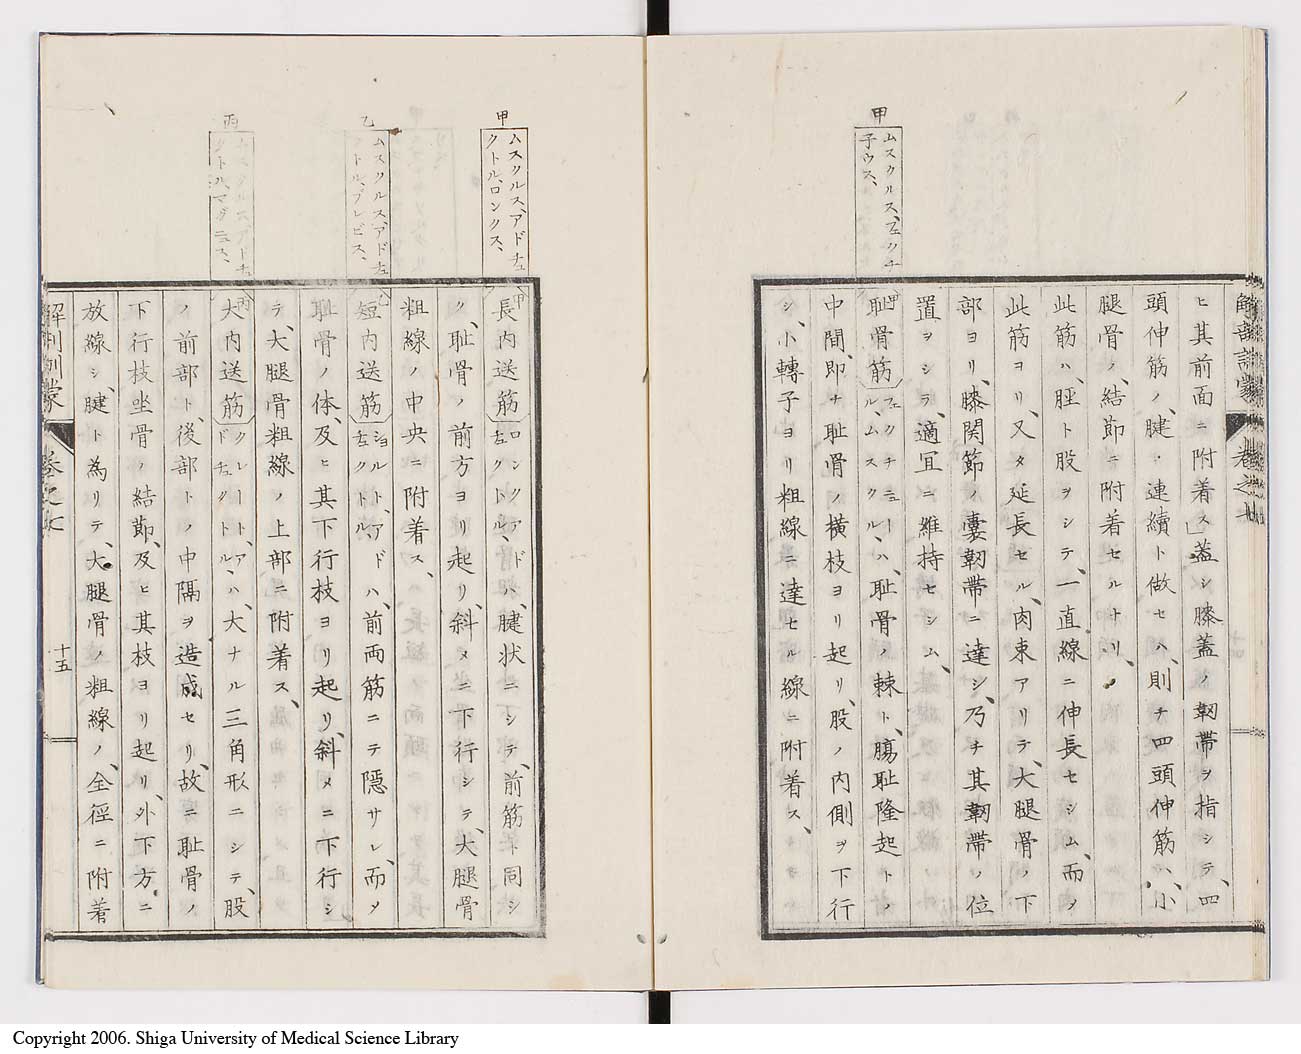 甲
ムスクルス、左クチ
子ウス、
ヒ其前面ニ附着ス」蓋シ膝蓋ノ韌帶ヲ指シテ、四
頭伸筋ノ腱、連續ト做セハ、則チ四頭伸筋ハ、小
腿骨ノ、結節ニ附着セルナリ、
此筋ハ、脛ト股ヲシテ、一直線ニ伸長セシム、而ノ
此筋ヨリ、又タ延長セル、肉束アリテ、大腿骨ノ下
部ヨリ、膝関節ノ囊韌帶ニ達シ、乃チ其韌帶ノ位
置ヲシラ、適冝ニ維持セシム、
甲
耻骨筋
フェクチニューハ、耻骨ノ棘ト、膓耻隆起トノ
ル、ムスクル、
中間、即ナ耻骨ノ橫枝ヨリ起リ、股ノ内側ヲ下行
シ、小轉子ヨリ粗線ニ達セル線ニ附着ス、
解剖訓蒙 卷之七
甲
ムスクルス、アドチュ
クトル、ロンクス、
乙
ムスクルス、アドチュ
クトル、ブレビス、
丙
ムスクルス、アドチュ
クトル、マグニュス、
甲
長内送筋
ロンクアド
左クトル、ハ、腱状ニシテ、前筋ト同シ
ク、耻骨ノ前方ヨリ起リ、斜メニ下行シテ、大腿骨
粗線ノ中央ニ附着ス、
乙
短内送筋
ショルト、アド
左クトル、ハ、前両筋ニテ隠サレ、而メ
耻骨ノ体、及ヒ其下行枝ヨリ起リ、斜メニ下行シ
テ、大腿骨粗線ノ上部ニ附着ス、
丙
大内送筋
クレート、ア
ドチュクトル、ハ、大ナル三角形ニシテ、股
ノ前部ト、後部トノ中隔ヲ造成セリ、故ニ耻骨ノ
下行枝坐骨ノ結節、及ヒ其枝ヨリ起リ、外下方ニ
放線シ、腱ト為リテ、大腿骨ノ粗線ノ、全徑ニ附着
解剖訓蒙 卷之七 十五
Copyright 2006. Shiga University of Medical Science Library